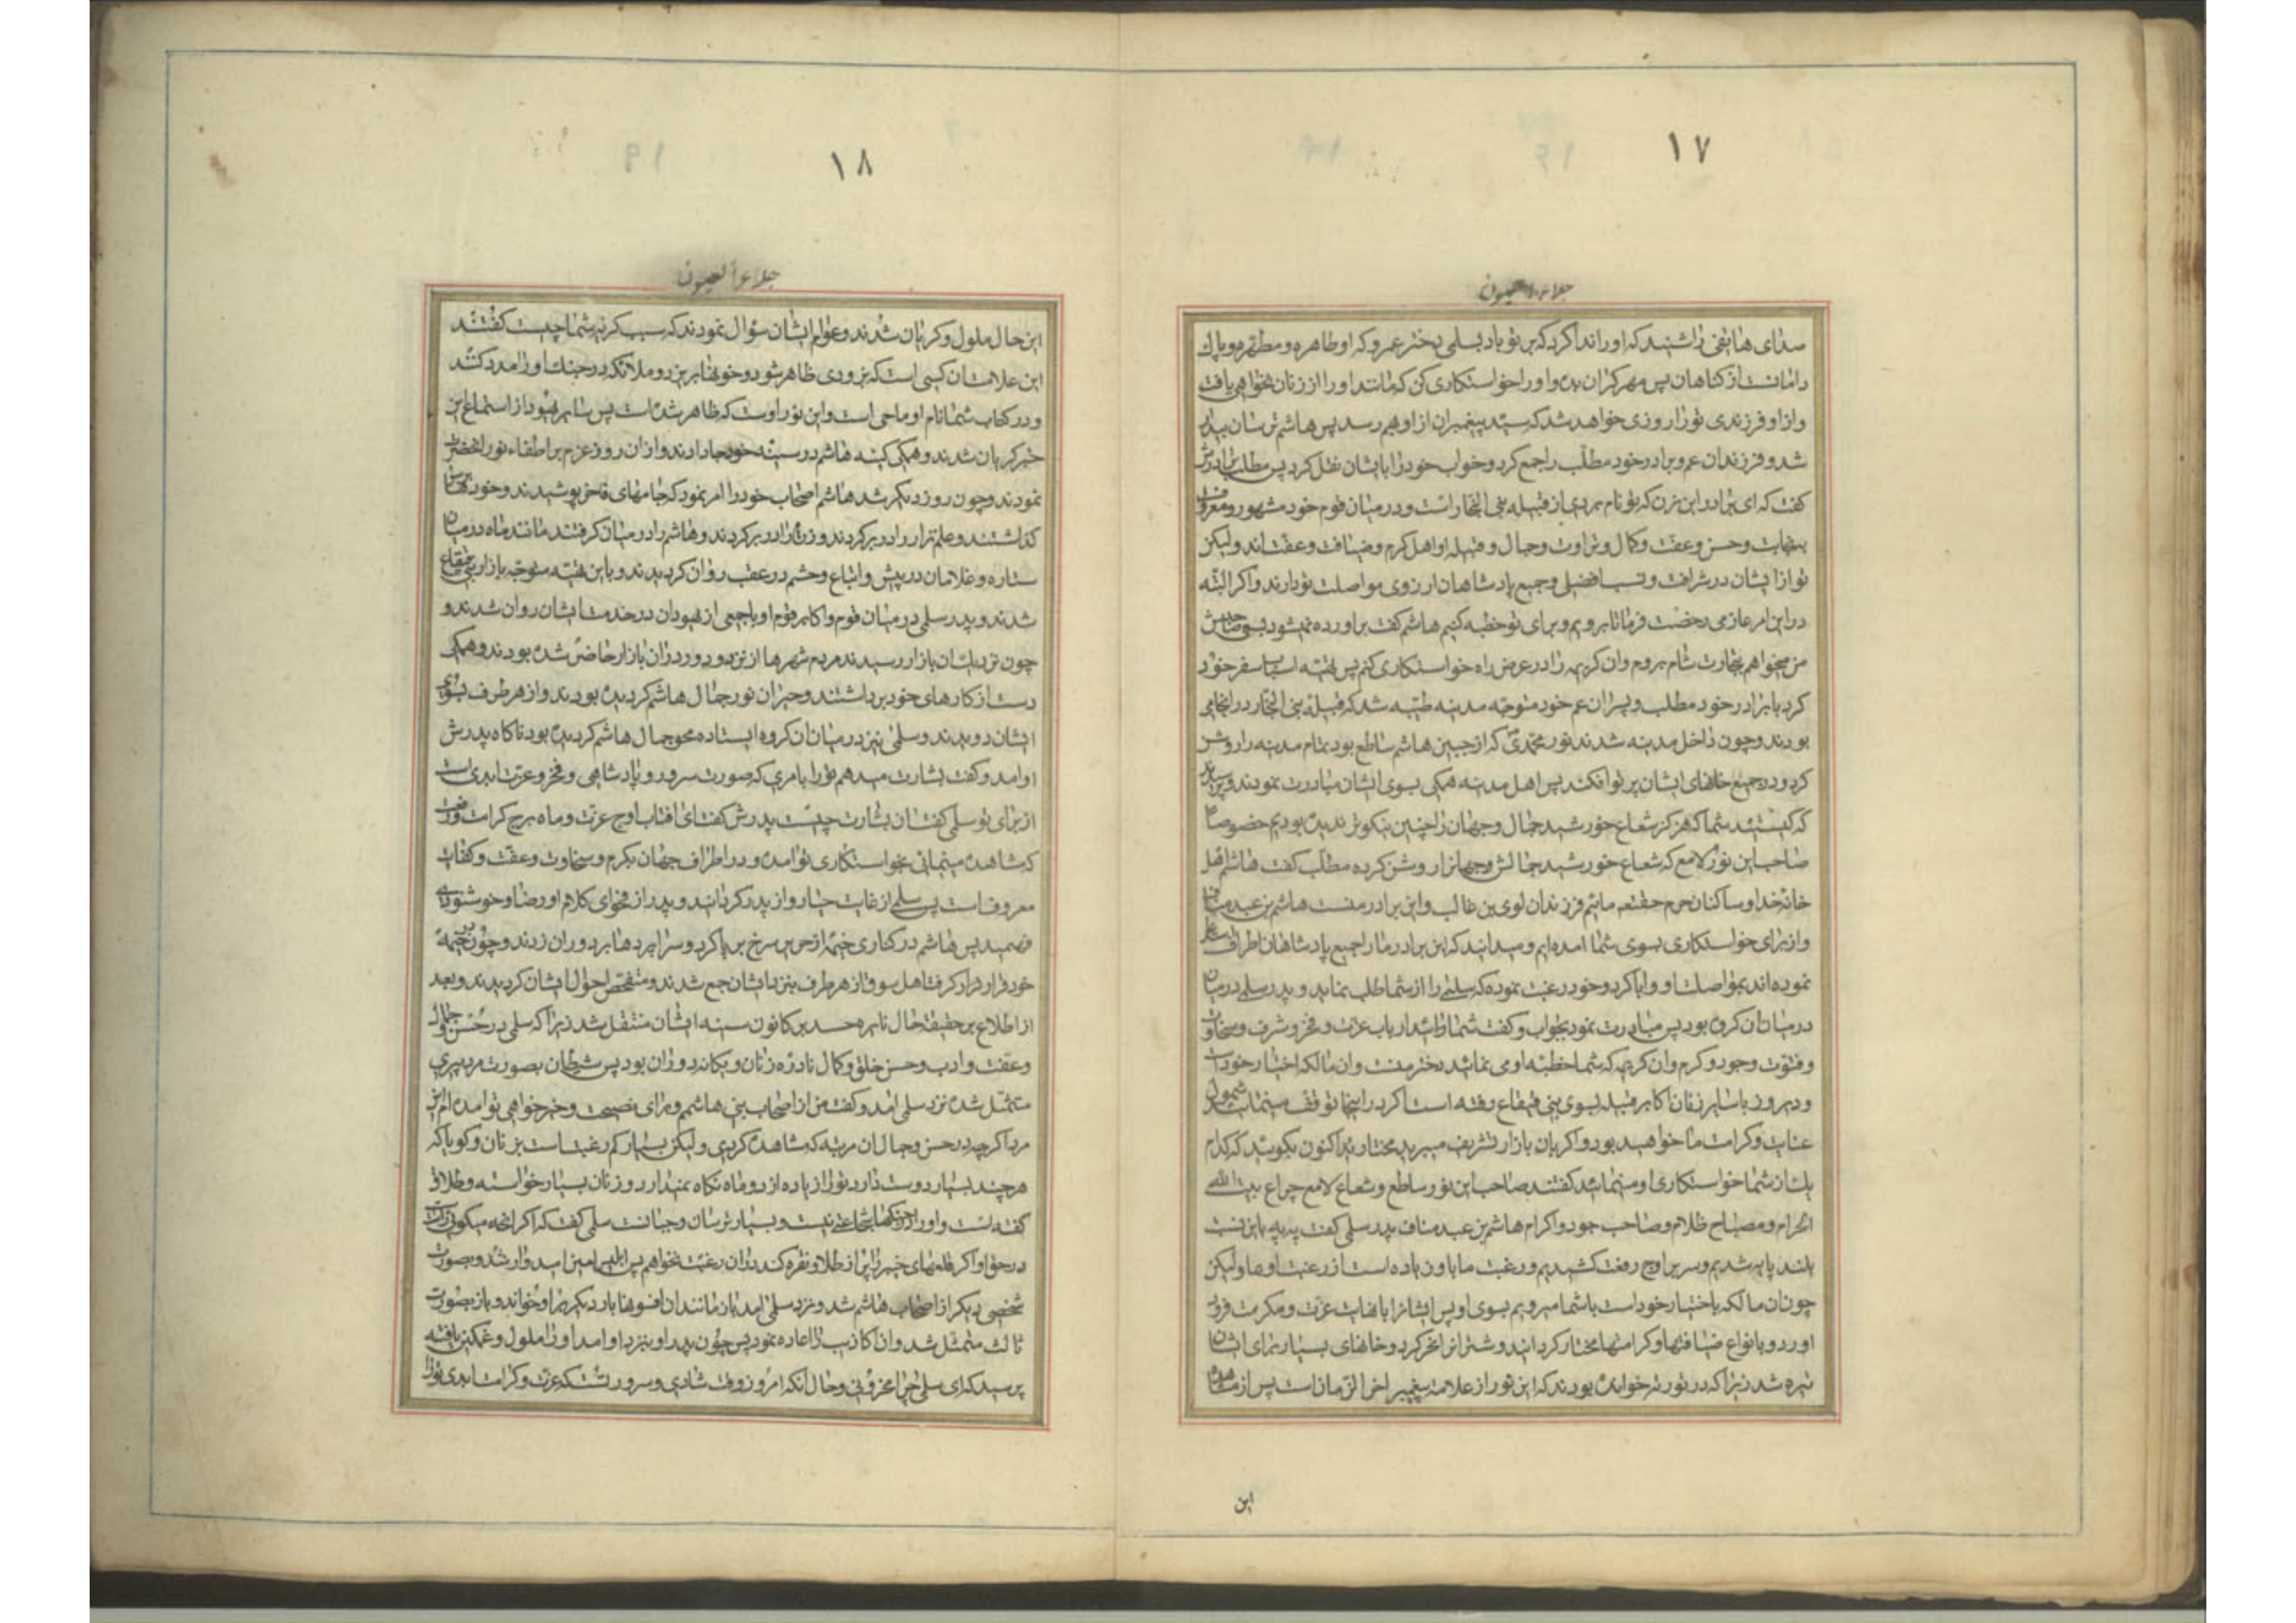 ١٧
جلاء العیون
صدای هاتفی را شنید که او را ندا کرد که بر تو باد بسلمی دختر عمرو که او طاهره و مطهره و پاک
دامانست از کناهان پس مهر کران بده و او را خواستکاری کن که مانند او را از زنان نخواهی یافت
و از او فرزندی تو را روزی خواهد شد که سید پیغمبران از او بهم رسد پس هاشم ترسان بیدار
شد و فرزندان عم و برادر خود مطلب را جمع کرد و خواب خود را بایشان نقل کرد پس مطلب برادرش
کفت که ای برادر این زن که تو نام بردی از قبیله بنی النجار است و در میان قوم خود مشهور و معروف
و حسن و عفت و کمال و طراوت و جمال و قبیله او اهل کرم و ضیافت و عفت اند و لیکن
تو از ایشان در شرافت و نسب افضلی و جمیع پادشاهان ارزوی مواصلت تو دارند و اکر البته
در این امر عازمی رخصت فرما تا برویم و برای تو خطبه کنیم هاشم کفت براورده نمیشود بسعی صاحبش
من میخواهم بتجارت شام بروم و ان کریمه را در عرض راه خواستکاری کنم پس تهیه اسباب سفر خود
کرد با برادر خود مطلب و پسران عم خود متوجه مدینه طیبه شد که قبیله بنی النجار در انجا می
بودند و چون داخل مدینه شدند نور محمدی که از جبین هاشم ساطع بود تمام مدینه را روشن
کرد و در جمیع خانهای ایشان پرتو افکند پس اهل مدینه همکی بسوی ایشان مبادرت نمودند و پرسیدند
که کیستید شما که هرکز شعاع خورشید جمال و جهان را چنین نیکوتر ندیده بودیم خصوصا
صاحب این نور لامع که شعاع خورشید جمالش جهانرا روشن کرده مطلب کفت ماییم اهل
خانه خدا و ساکنان حرم حقتعالی ماییم فرزندان لوی بن غالب و این برادر منست هاشم بن عبد مناف
و از برای خواستکاری بسوی شما امده ایم و میدانید که این برادر ما را جمیع پادشاهان اطراف
نموده اند بمواصلت او و ابا کرد و خود رغبت نموده که سلمی را از شما طلب نماید و پدر سلمی در میان
در میان ان کروه بود پس مبادرت نمود بجواب و کفت شمائید ارباب عزت و فخر و شرف و سخاوت
و فتوت و جود و کرم و ان کریمه که شما خطبه او می نمائید دختر منست و ان مالکه اختیار خود است
و دیروز با سایر زنان اکابر قبیله بسوی بنی قینقاع رفته است اکر در اینجا توقف مینمائید مشمول
عنایت و کرامت ما خواهید بود و اکر بان بازار تشریف میبرید مختارید اکنون بکوئید که کدام
یک از شما خواستکاری او مینمائید کفتند صاحب این نور ساطع و شعاع لامع چراغ بیت الله
الحرام و مصباح ظلام و صاحب جود و اکرام هاشم بن عبد مناف پدر سلمی کفت به به باین نسبت
بلند پایه شدیم و سر بر اوج رفعت کشیدیم و رغبت ما باو زیاده است از رغبت او بما و لیکن
چون ان مالکه باختیار خود است با شما میرویم بسوی او پس ایشانرا بنهایت عزت و مکرمت فرود
اورد و بانواع ضیافتها و کرامتها مختار کردانید و شتران نحر کرد و خانهای بسیار برای ایشان
تیره شد زیرا که در توریه خوانده بودند که این نور از علامت پیغمبر اخر الزمان است پس از مشاهده
این
١٨
جلاء العیون
این حال ملول و کریان شدند و عوام ایشان سؤال نمودند که سبب کریه شما چیست کفتند
این علامت ان کسی است که بزودی ظاهر شود و خونها بریزد و ملائکه در جنک او را مدد کنند
و در کتاب شما نام او ماحی است و این نور اوست که ظاهر شده است پس سایر یهود از استماع این
خبر کریان شدند و همکی کینه هاشم در سینه خود جا دادند و از ان روز عزم بر اطفاء نور انحضرت
نمودند و چون روز دیکر شد هاشم اصحاب خود را امر نمود که جامهای فاخر پوشیدند و خود
کذاشتند و علم نزار را در بر کردند و هاشم را در میان کرفتند مانند ماه در میان
ستاره و غلامان در پیش و اتباع و حشم در عقب روان کردیدند و باین تهیه متوجه بازار بنی قینقاع
شدند و پدر سلمی در میان قوم و اکابر قوم او با جمعی از یهودان در خدمت ایشان روان شدند و
چون نزدیک بان بازار رسیدند مردم شهرها از نزد و دور دران بازار حاضر شده بودند و همکی
دست از کارهای خود برداشتند و حیران نور جمال هاشم کردیده بودند و از هر طرف بسوی
ایشان دویدند و سلمی نیز در میان ان کروه ایستاده محو جمال هاشم کردیده بود ناکاه پدرش
او امد و کفت بشارت میدهم تو را بامری که صورت سرور و پادشاهی و فخر و عزت ابدی است
از برای تو سلمی کفت ان بشارت چیست پدرش کفت ای افتاب اوج عزت و ماه برج کرامت و رفعت
که مشاهده مینمائی بخواستکاری تو امده و در اطراف جهان بکرم و سخاوت و عفت و کفایت
معروف است پس سلمی از غایت حیا رو از پدر کردانید و پدر از فحوای کلام او رضا و خوشنودی
فهمید پس هاشم در کناری خیمه از حریر سرخ بر پا کرد و سراپردها بر دوران زدند و چون در خیمه
خود قرار کرفت اهل سوق از هر طرف بنزد ایشان جمع شدند و متفحص احوال ایشان کردیدند و بعد
از اطلاع بر حقیقت حال نایره حسد بر کانون سینه ایشان مشتعل شد زیرا که سلمی در حسن و جمال
و عفت و ادب و حسن خلق و کمال نادره زنان و یکانه دوران بود پس شیطان بصورت مرد پیری
متمثل شده نزد سلمی امد و کفت من از اصحاب بنی هاشمم و برای نصیحت و خیر خواهی تو امده ام این
مرد اکرچه در حسن و جمال ان مرتبه که مشاهده کردی و لیکن بسیار کم رغبت است بزنان و کویا که
هر چند بسیار دوست دارد تو را زیاده از دو ماه نکاه نمیدارد و زنان بسیار خواسته و طلاق
کفته است و او را در جنکها شجاعتی نیست و بسیار ترسان و جبانست سلمی کفت که اکر انچه میکوئی
در حق او اکر قلعهای خیبر را پر از طلا و نقره کند دران رغبت نخواهم پس ابلیس امیدوار شد و بصورت
شخصی دیکر از اصحاب هاشم شد و نزد سلمی امد باز مانند ان افسونها بار دیکر بر او خواند و باز بصورت
ثالث متمثل شد و ان کاذیب را اعاده نمود پس چون پدر او بنزد او امد او را ملول و غمکین یافته
پرسید که ای سلمی چرا محزونی و حال انکه امروز وقت شادی و سرور تست که عزت و کرامت ابدی تو را